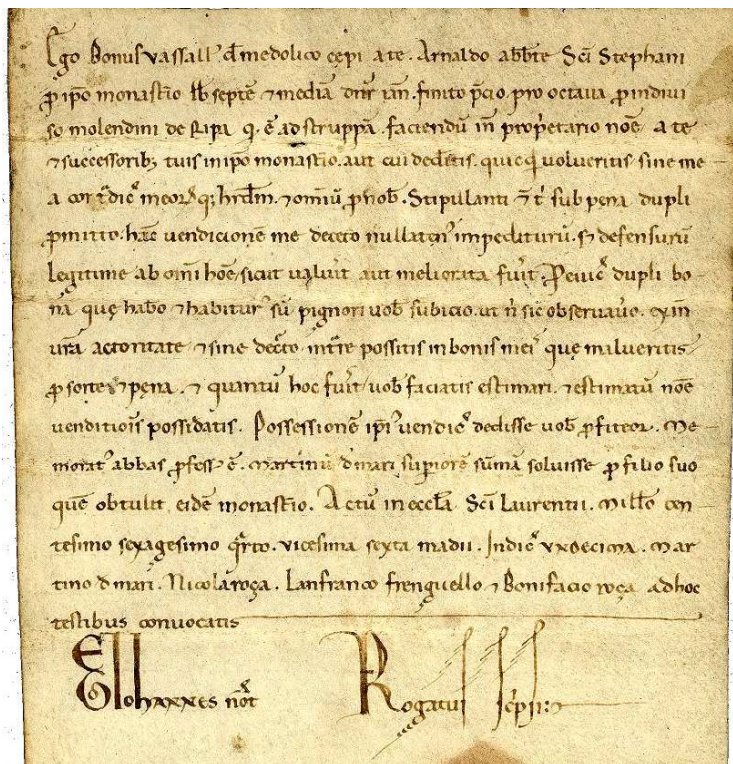 Ego Bonusvassall' de medolico cępi a te. Arnaldo abbte Sci Stephani
p ipo monastio lb septē ⁊ mediā dnr ian. finito pcio, pro octaua pindiui
so molendini de Ripa q. ē ad struppā. faciendū in propetario noē a te
⁊ successorib; tuis in ipo monastio. aut cui dedetis. quicq volueritis sine me
a dic meorq; hrdm. ⁊ omiū p nob. Stipulanti sub pena dupli
pmitto. hac uendicionē me deceto nullaten' impediturū. s; defensurū
legitime ab omi hoē sicut ualuit aut meliorata fuit. dupli bo
na quę habo ⁊ habitur' sū pignori uob subicio. ut n sic obseruauo.
ura actoritate ⁊ sine deceto. intre possitis in bonis mei' quę malueritis
p sorte ⁊ pęna. ⁊ quantū hoc fuit uob faciatis estimari. ⁊ estimatū noē
uenditiois possidatis. Possessionē ipi' uendic dedisse uob pfiteor. Me
morat' abbas pfess' ē. Martinū d mari supiorē sūmā soluisse p filio suo
quē obtulit eidē monastio. Actū in eccla Sci Laurentii. Millo cen
tesimo sexagesimo qrto. uicesima sexta madii. Indic undecima. Mar
tino d mari. Nicola roça. Lanfranco frenguello ⁊ Bonifacio roça ad hoc
testibus conuocatis
Ego Iohannes not Rogatus scpsi: